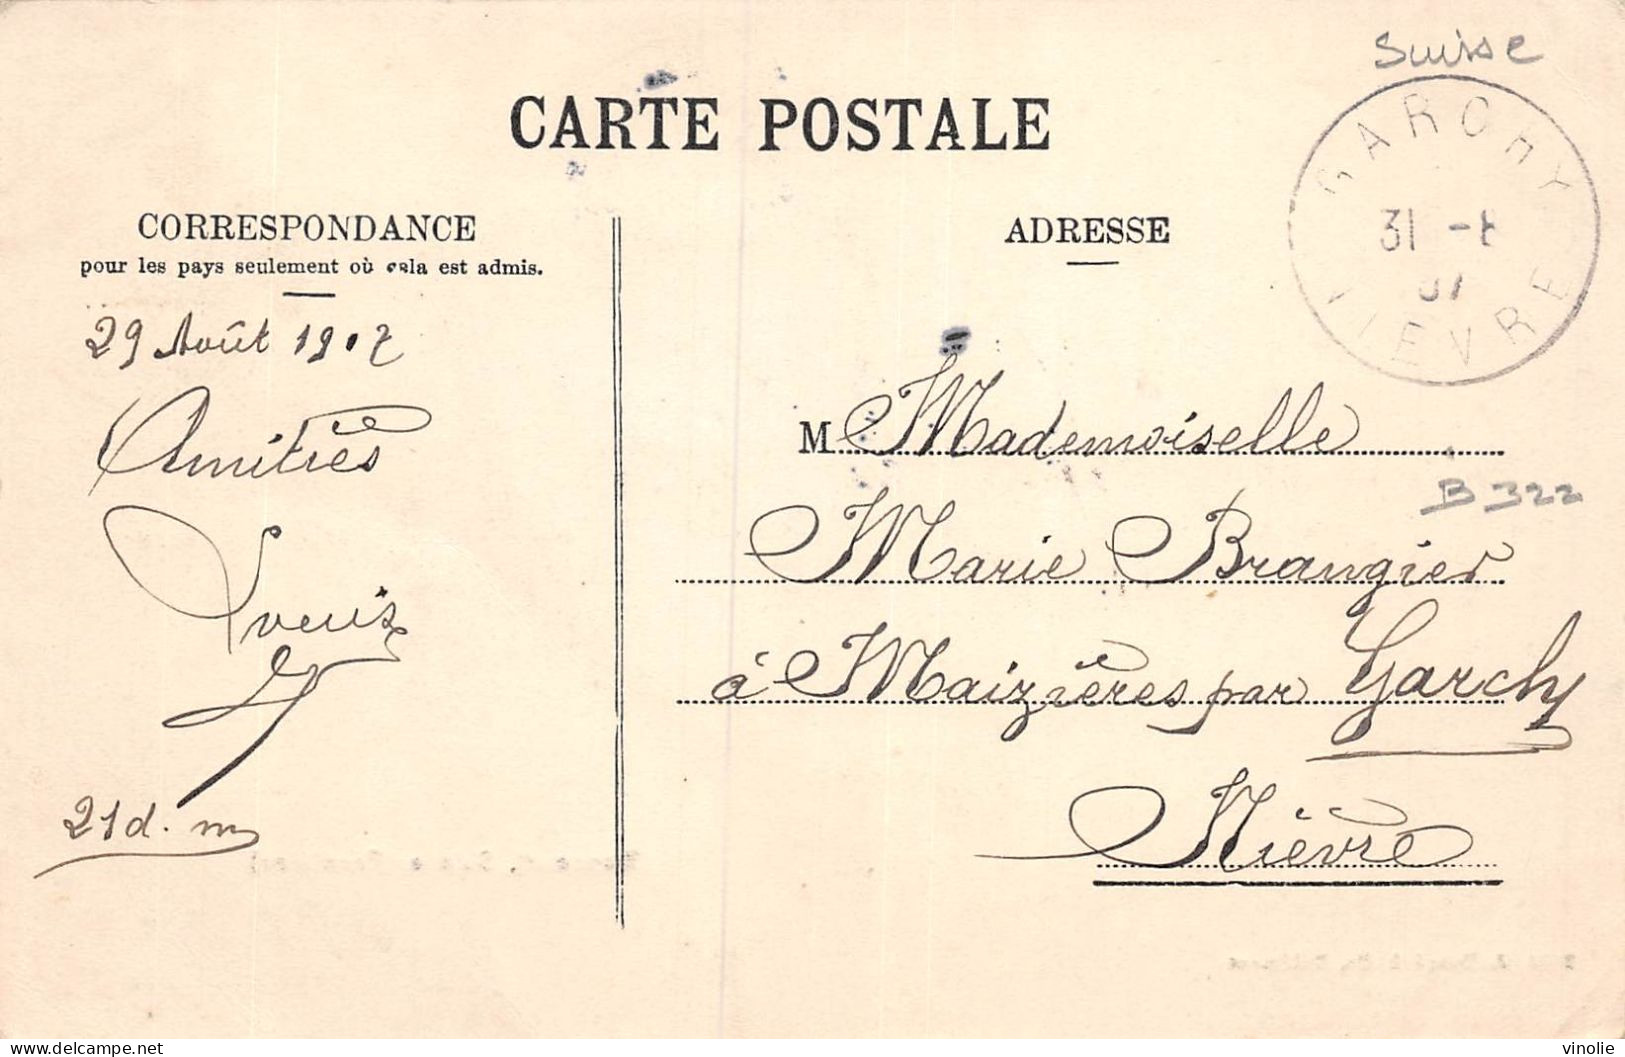 Suisse
CARTE POSTALE
GARCHY
31 -8
07
NIEVRE
CORRESPONDANCE
pour les pays seulement où cela est admis.
ADRESSE
29 Août 1907
Amitiés
21 d. m
M Mademoiselle
B 322
Marie Brangier
à Maizières par Garchy
Nièvre
delcampe.net
vinolie